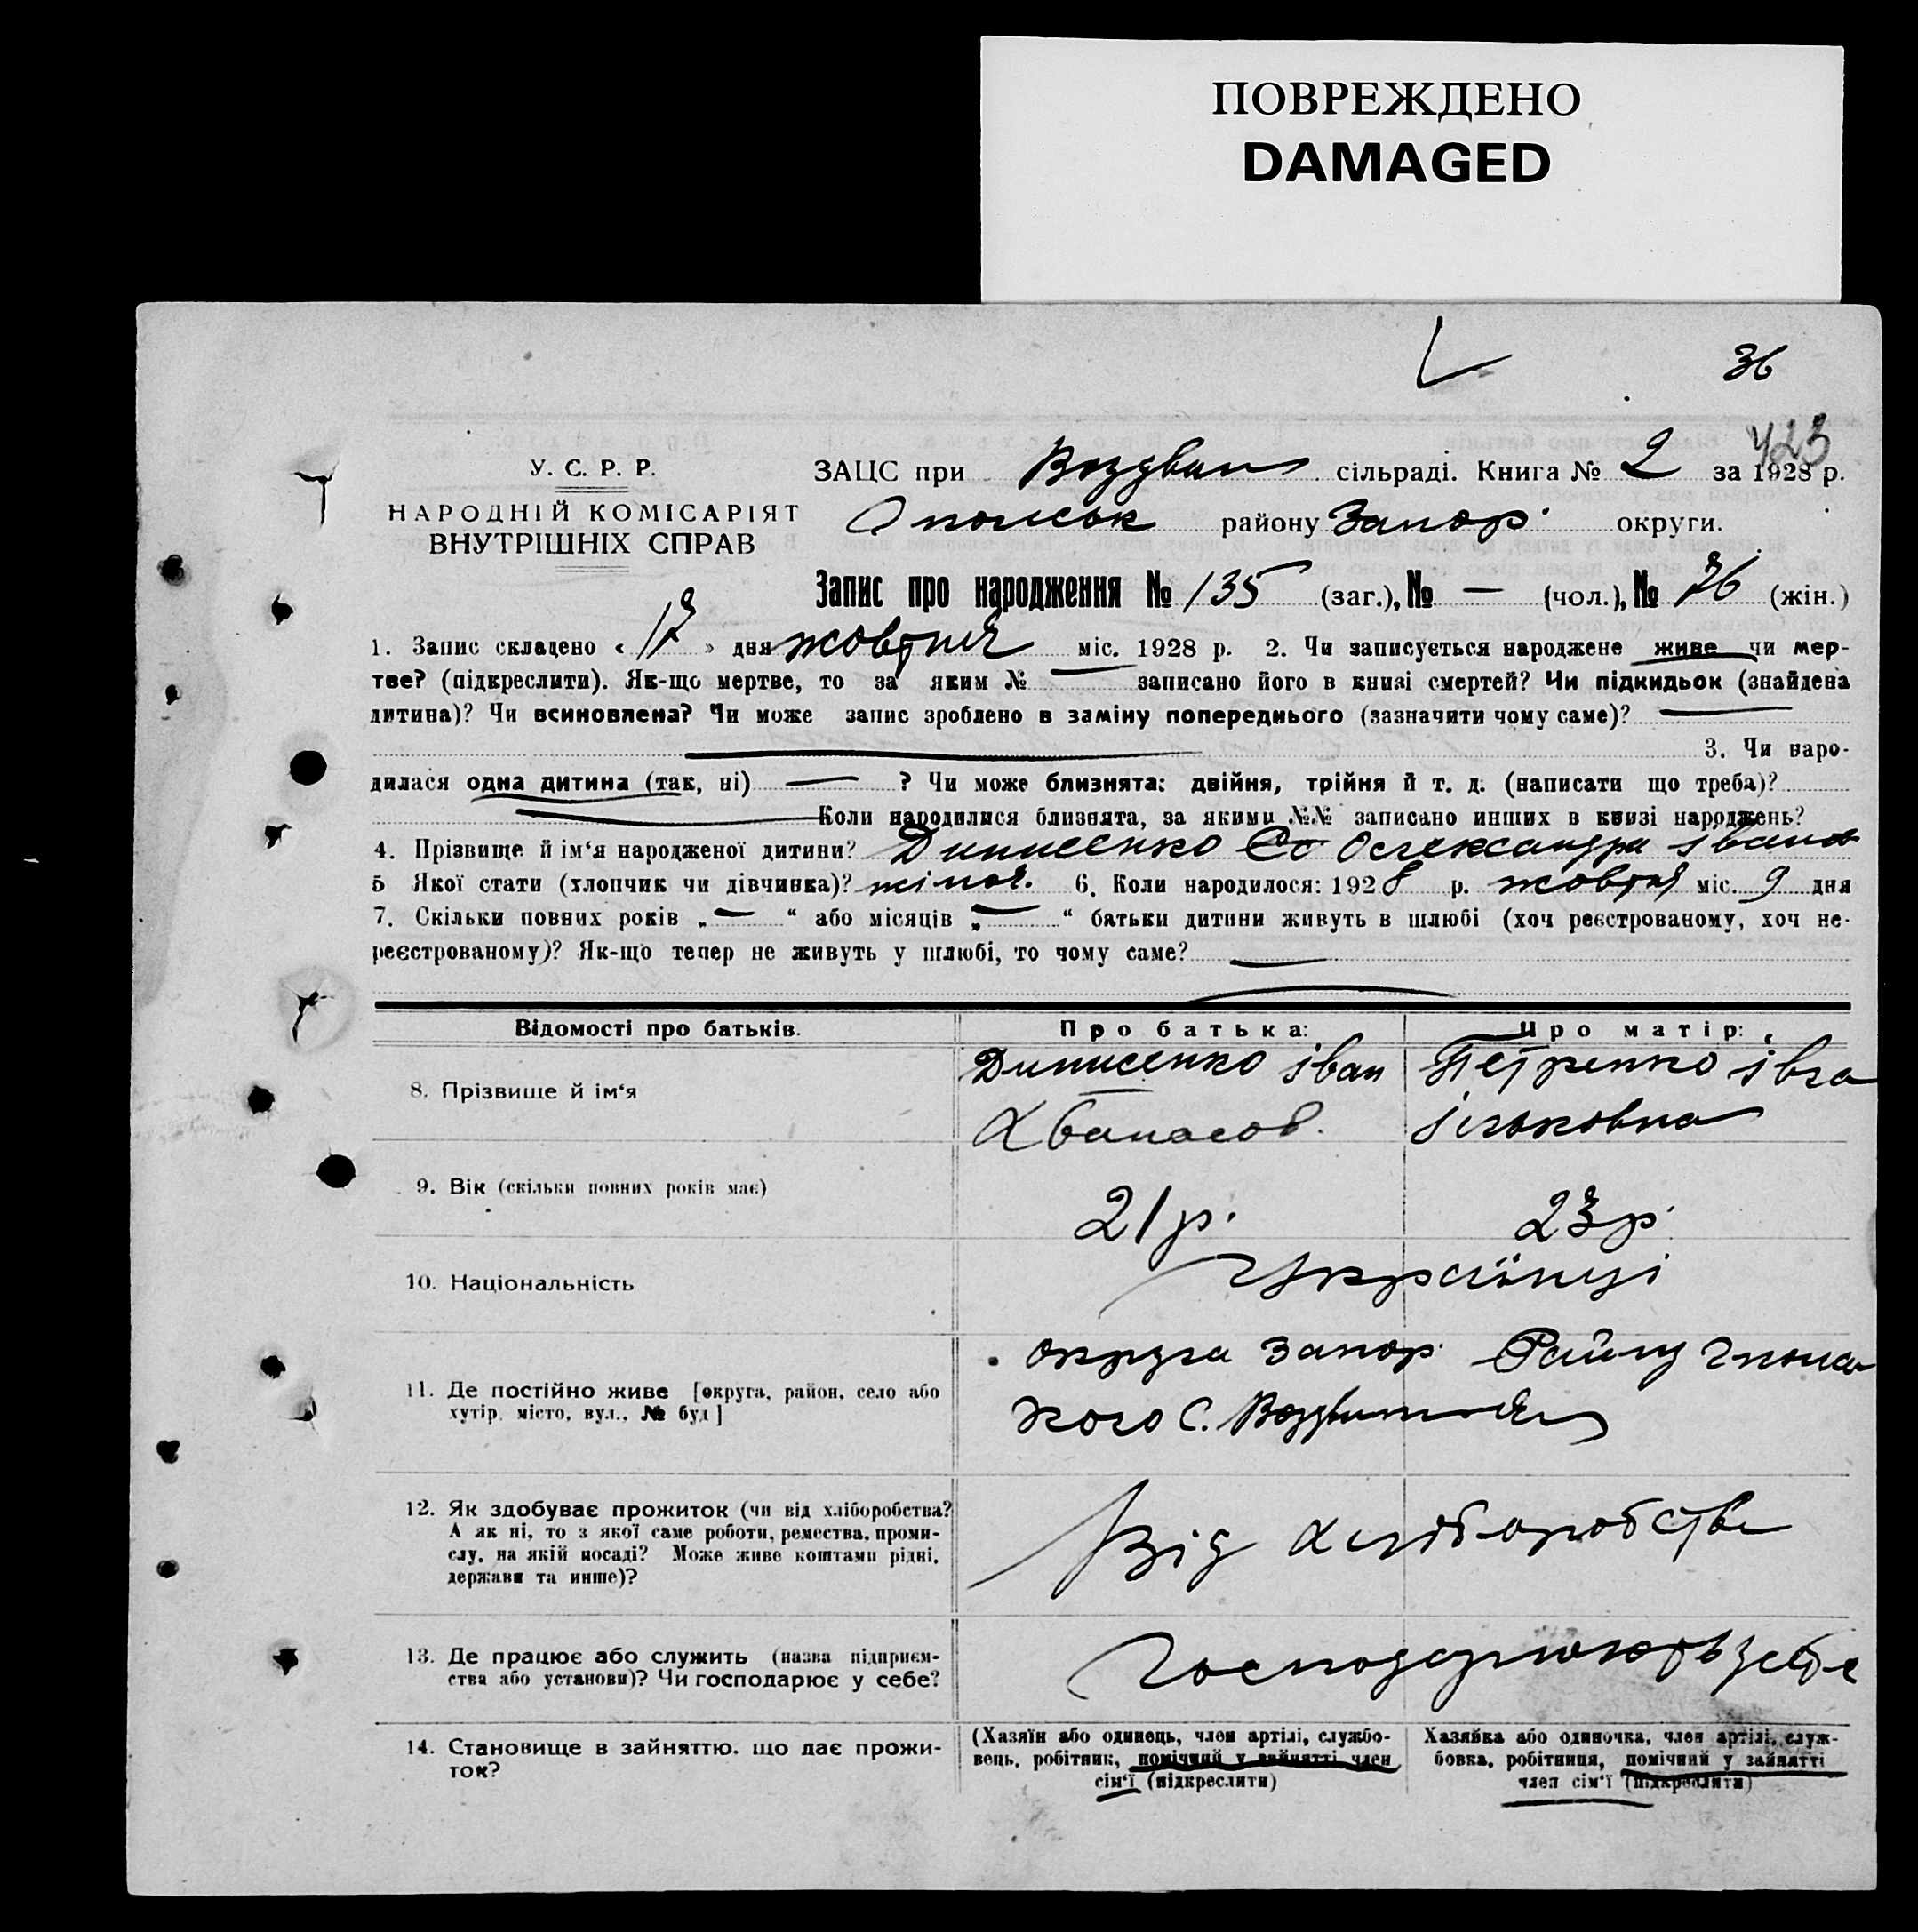 ПОВРЕЖДЕНО
DAMAGED
36
423
У. С. Р. Р.
НАРОДНІЙ КОМІСАРІЯТ
ВНУТРІШНІХ СПРАВ
ЗАЦС при Воздвиж сільраді. Книга № 2 за 1928 р.
району Запор. округи.
Запис про народження № 135 (заг.), № — (чол.), № 76 (жін.)
1. Запис складено « 17 » дня жовтня міс. 1928 р. 2. Чи записується народжене живе чи мер-
тве? (підкреслити). Як-що мертве, то за яким № — записано його в книзі смертей? Чи підкидьок (знайдена
дитина)? Чи всиновлена? Чи може запис зроблено в заміну попереднього (зазначити чому саме)? —
3. Чи наро-
дилася одна дитина (так, ні) — ? Чи може близнята: двійня, трійня й т. д. (написати що треба)?
Коли народилися близнята, за якими №№ записано инших в книзі народжень?
4. Прізвище й ім‘я народженої дитини? Динисенко Олександра івана
5 Якої стати (хлопчик чи дівчинка)? жіноч. 6. Коли народилося: 1928 р. жовтня міс. 9 дня
7. Скільки повних років „ — “ або місяців „ — “ батьки дитини живуть в шлюбі (хоч реєстрованому, хоч не-
реєстрованому)? Як-що тепер не живуть у шлюбі, то чому саме? —
Відомості про батьків.
Про батька:
Про матір:
8. Прізвище й ім‘я
Динисенко іван
Афанасов.
Петренко івга
ільковна
9. Вік (скільки повних років має)
21 р.
23 р.
10. Національність
Українці
11. Де постійно живе [округа, район, село або
хутір, місто, вул., № буд]
округа Запор. Району
кого С.
12. Як здобуває прожиток (чи від хліборобства?
А як ні, то з якої саме роботи, ремества, проми-
слу, на якій посаді? Може живе коштами рідні,
держави та инше)?
Від хліборобства
13. Де працює або служить (назва підприєм-
ства або установи)? Чи господарює у себе?
Господарюють у себе
14. Становище в зайняттю, що дає прожи-
ток?
(Хазяїн або одинець, член артілі, службо-
вець, робітник, помічний у зайнятті член
сім‘ї (підкреслити)
Хазяйка або одиночка, член артілі, служ-
бовка, робітниця, помічний у зайнятті
член сім‘ї (підкреслити)